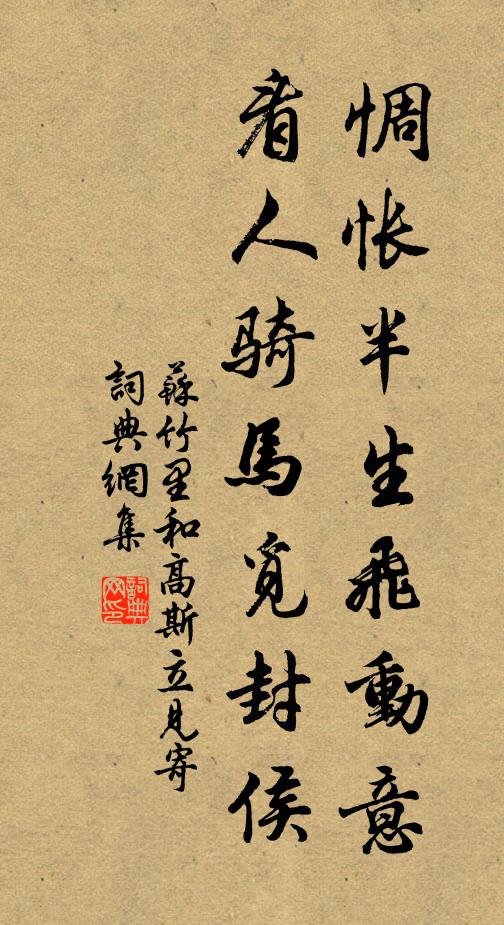 惆怅半生飛動意
看人骑馬覓封侯
蘇竹里和高斯立見寄
詞典網集
詞典網印